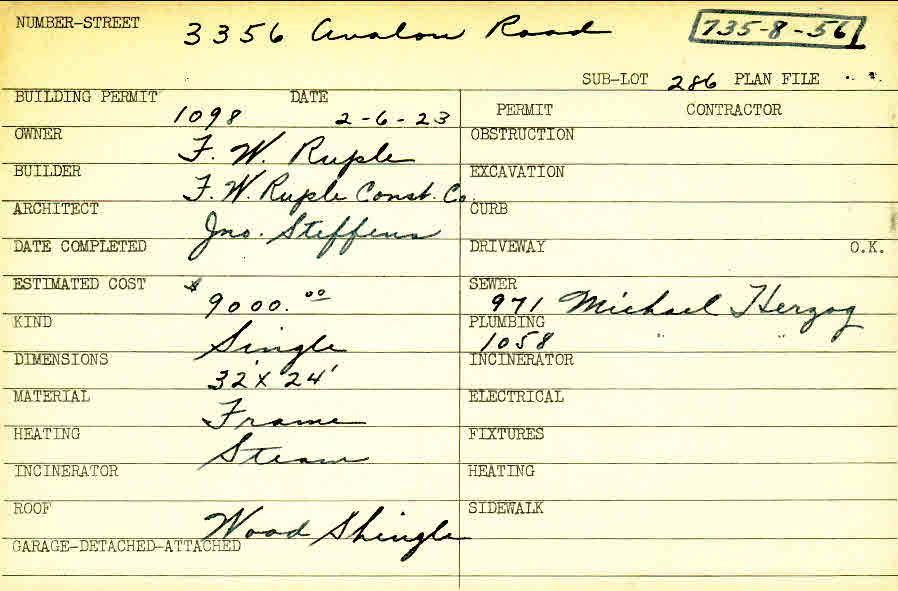 NUMBER-STREET 3356 Avalon Road 735-8-56
SUB-LOT 286 PLAN FILE
BUILDING PERMIT DATE PERMIT CONTRACTOR
1098 2-6-23
OWNER F. W. Ruple OBSTRUCTION
BUILDER F. W. Ruple Const. Co. EXCAVATION
ARCHITECT Jno. Steffens CURB
DATE COMPLETED DRIVEWAY O.K.
ESTIMATED COST $ 9000.00 SEWER 971 Michael Herzog
KIND Single PLUMBING 1058 " "
DIMENSIONS 32' X 24' INCINERATOR
MATERIAL Frame ELECTRICAL
HEATING Steam FIXTURES
INCINERATOR HEATING
ROOF Wood Shingle SIDEWALK
GARAGE-DETACHED-ATTACHED